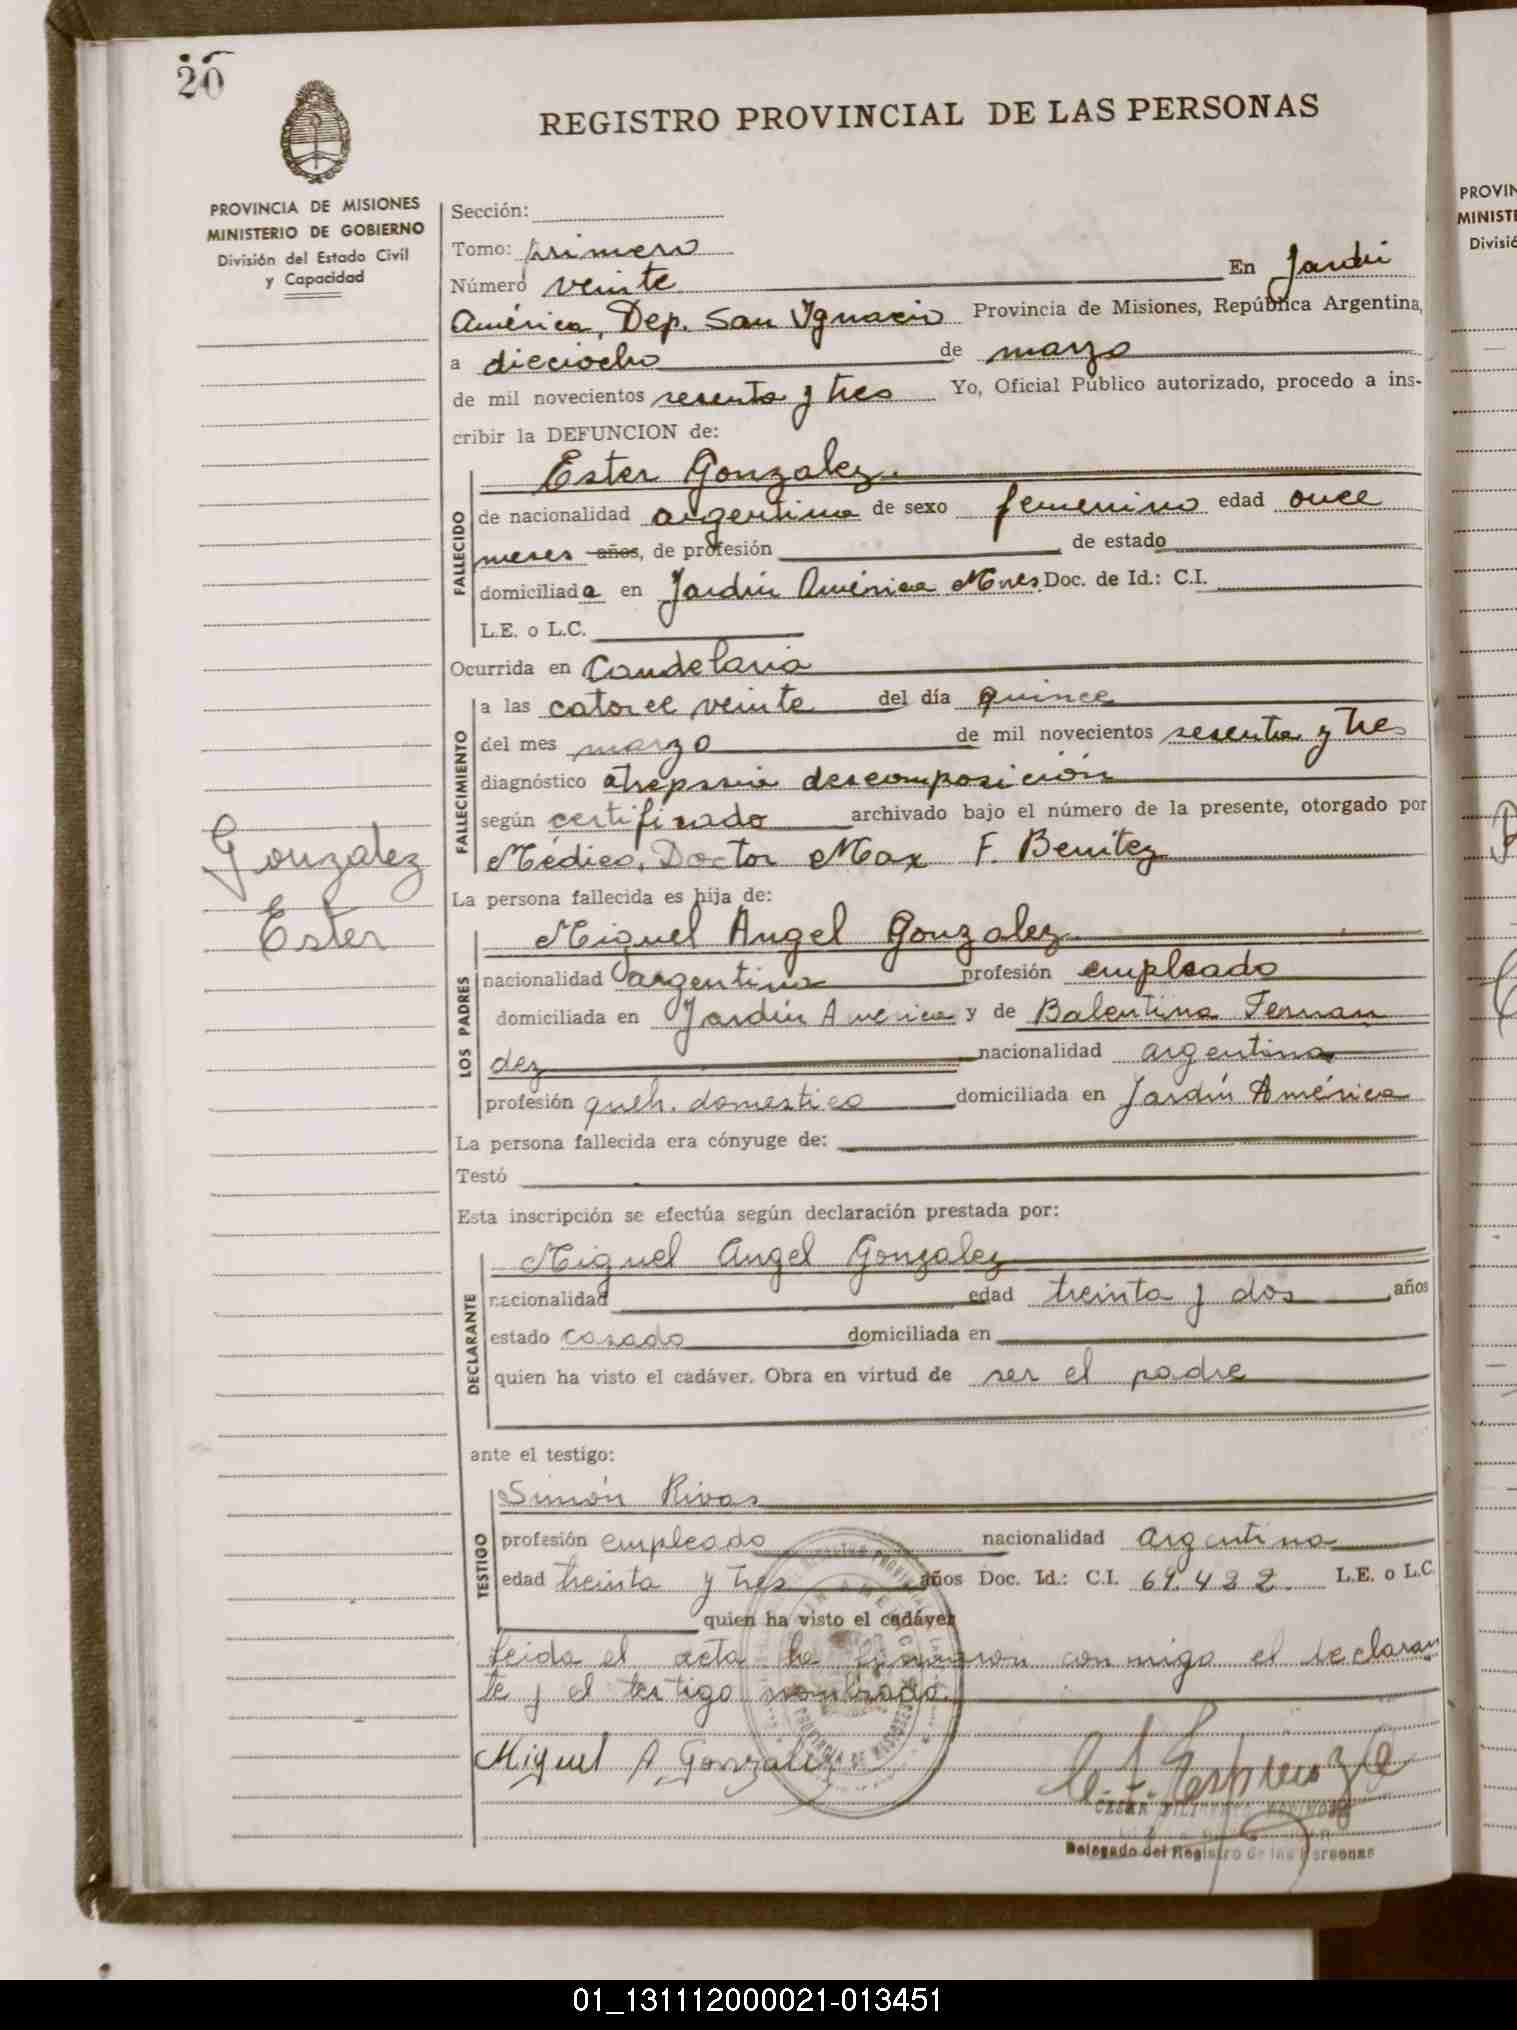 20
REGISTRO PROVINCIAL DE LAS PERSONAS
PROVINCIA DE MISIONES
MINISTERIO DE GOBIERNO
División del Estado Civil
y Capacidad
Sección:
Tomo: primero
Número veinte En Jardín
América, Dep. San Ignacio Provincia de Misiones, República Argentina,
a dieciocho de marzo
de mil novecientos sesenta y tres Yo, Oficial Público autorizado, procedo a ins-
cribir la DEFUNCION de:
FALLECIDO
Ester Gonzalez
de nacionalidad argentina de sexo femenino edad once
meses años, de profesión de estado
domiciliada en Jardín América Mnes. Doc. de Id.: C.I.
L.E. o L.C.
Ocurrida en Candelaria
FALLECIMIENTO
a las catorce veinte del día quince
del mes marzo de mil novecientos sesenta y tres
diagnóstico atrepsia descomposición
según certificado archivado bajo el número de la presente, otorgado por
Médico, Doctor Max F. Benítez
Gonzalez
Ester
La persona fallecida es hija de:
LOS PADRES
Miguel Angel Gonzalez
nacionalidad argentina profesión empleado
domiciliada en Jardín América y de Balentina Fernan
dez nacionalidad argentina
profesión queh. domestico domiciliada en Jardín América
La persona fallecida era cónyuge de:
Testó
Esta inscripción se efectúa según declaración prestada por:
DECLARANTE
Miguel Angel Gonzalez
nacionalidad edad treinta y dos años
estado casado domiciliada en
quien ha visto el cadáver. Obra en virtud de ser el padre
ante el testigo:
TESTIGO
Simón Rivas
profesión empleado nacionalidad argentina
edad treinta y tres años Doc. Id.: C.I. 69.482. L.E. o L.C.
quien ha visto el cadáver
leida el acta la firmaron conmigo el declaran
te y el testigo nombrado.
Miguel A. Gonzalez
PROVINCIA DE MISIONES
Delegado del Registro de las Personas
PROVIN
MINISTE
Divisió
01_131112000021-013451